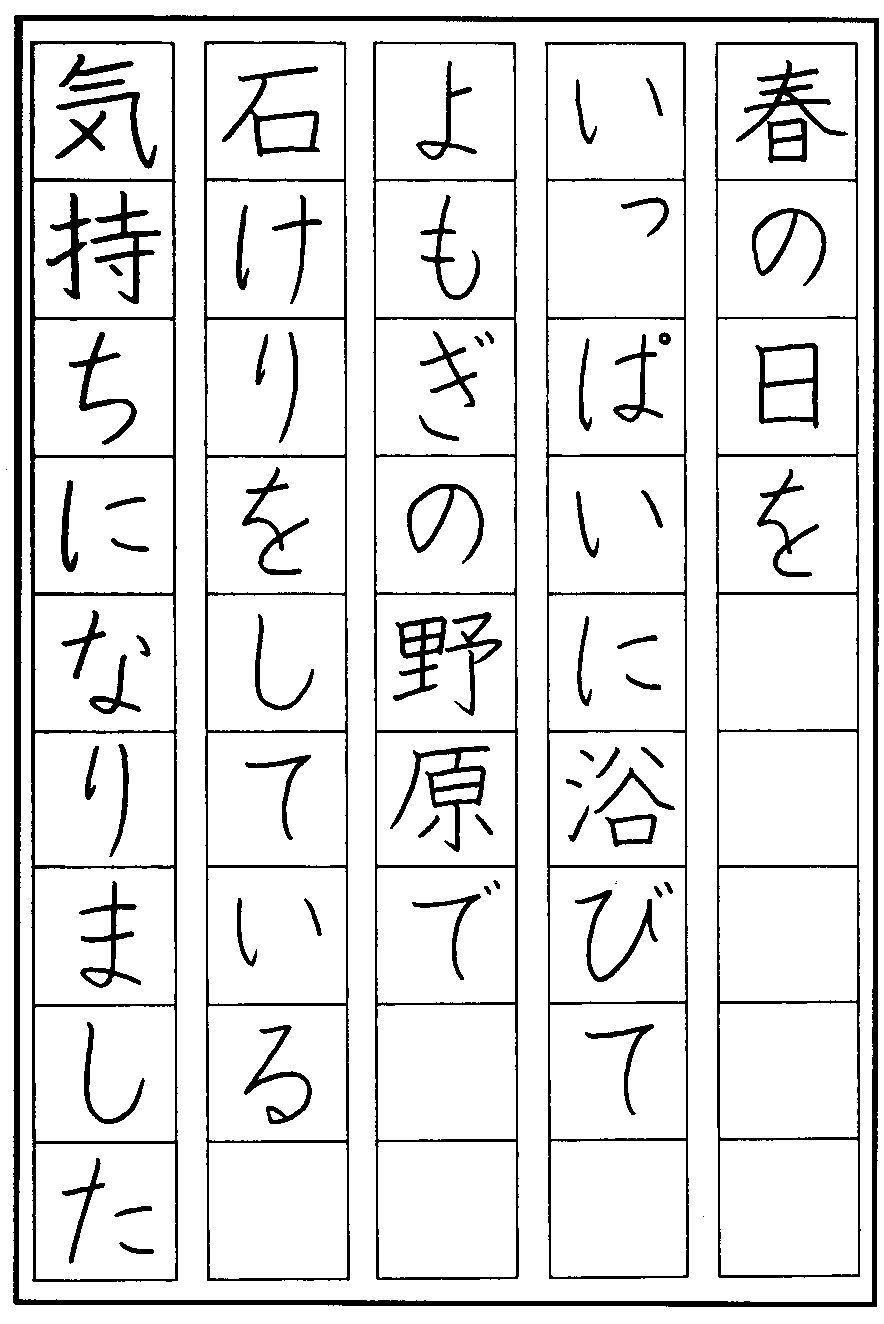 春の日を
いっぱいに浴びて
よもぎの野原で
石けりをしている
気持ちになりました